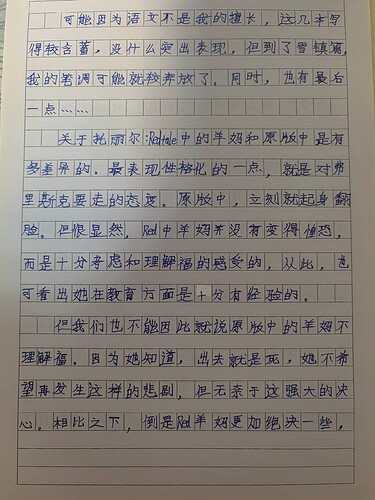 可能因为语文不是我的擅长，这几本写
得较含蓄，没什么突出表现，但到了雪镇篇，
我的笔调可能就较奔放了。同时，也有最后
一点……
关于托丽尔:Redtale中的羊妈和原版中是有
多差异的。最表现性格化的一点，就是对弗
里斯克要走的态度。原版中，立刻就起身翻
脸。但很显然，Red中羊妈并没有变得惶恐，
而是十分考虑和理解福的感受的，从此，也
可看出她在教育方面是十分有经验的。
但我们也不能因此就说原版中的羊妈不
理解福。因为她知道，出去就是死，她不希
望再发生这样的悲剧，但无奈于这强大的决
心。相比之下，倒是Red羊妈更加绝决一些，